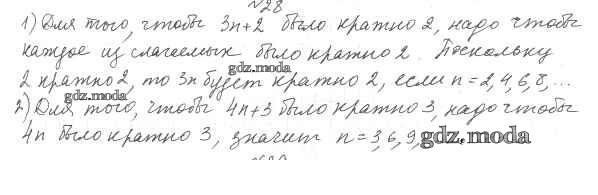 №28
1) Для того, чтобы 3n+2 было кратно 2, надо чтобы
каждое из слагаемых было кратно 2. Поскольку
gdz.moda
2 кратно 2, то 3n будет кратно 2, если n=2,4,6,8,...
gdz.moda
2) Для того, чтобы 4n+3 было кратно 3, надо чтобы
4n было кратно 3, значит n=3,6,9,
gdz.moda